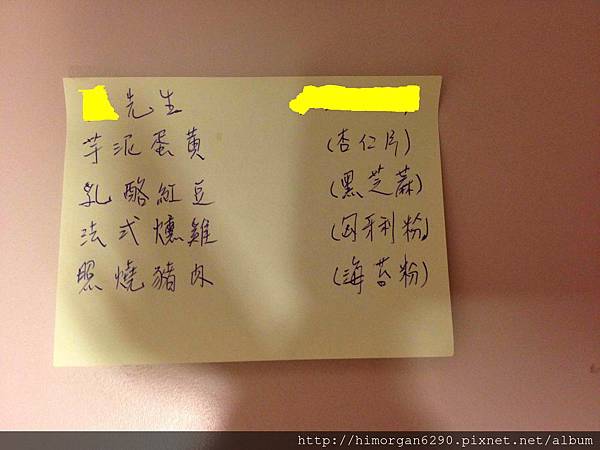 先生
芋泥蛋黃 (杏仁片)
乳酪紅豆 (黑芝蔴)
法式燻雞 (匈牙利粉)
照燒豬肉 (海苔粉)
http://himorgan6290.pixnet.net/album